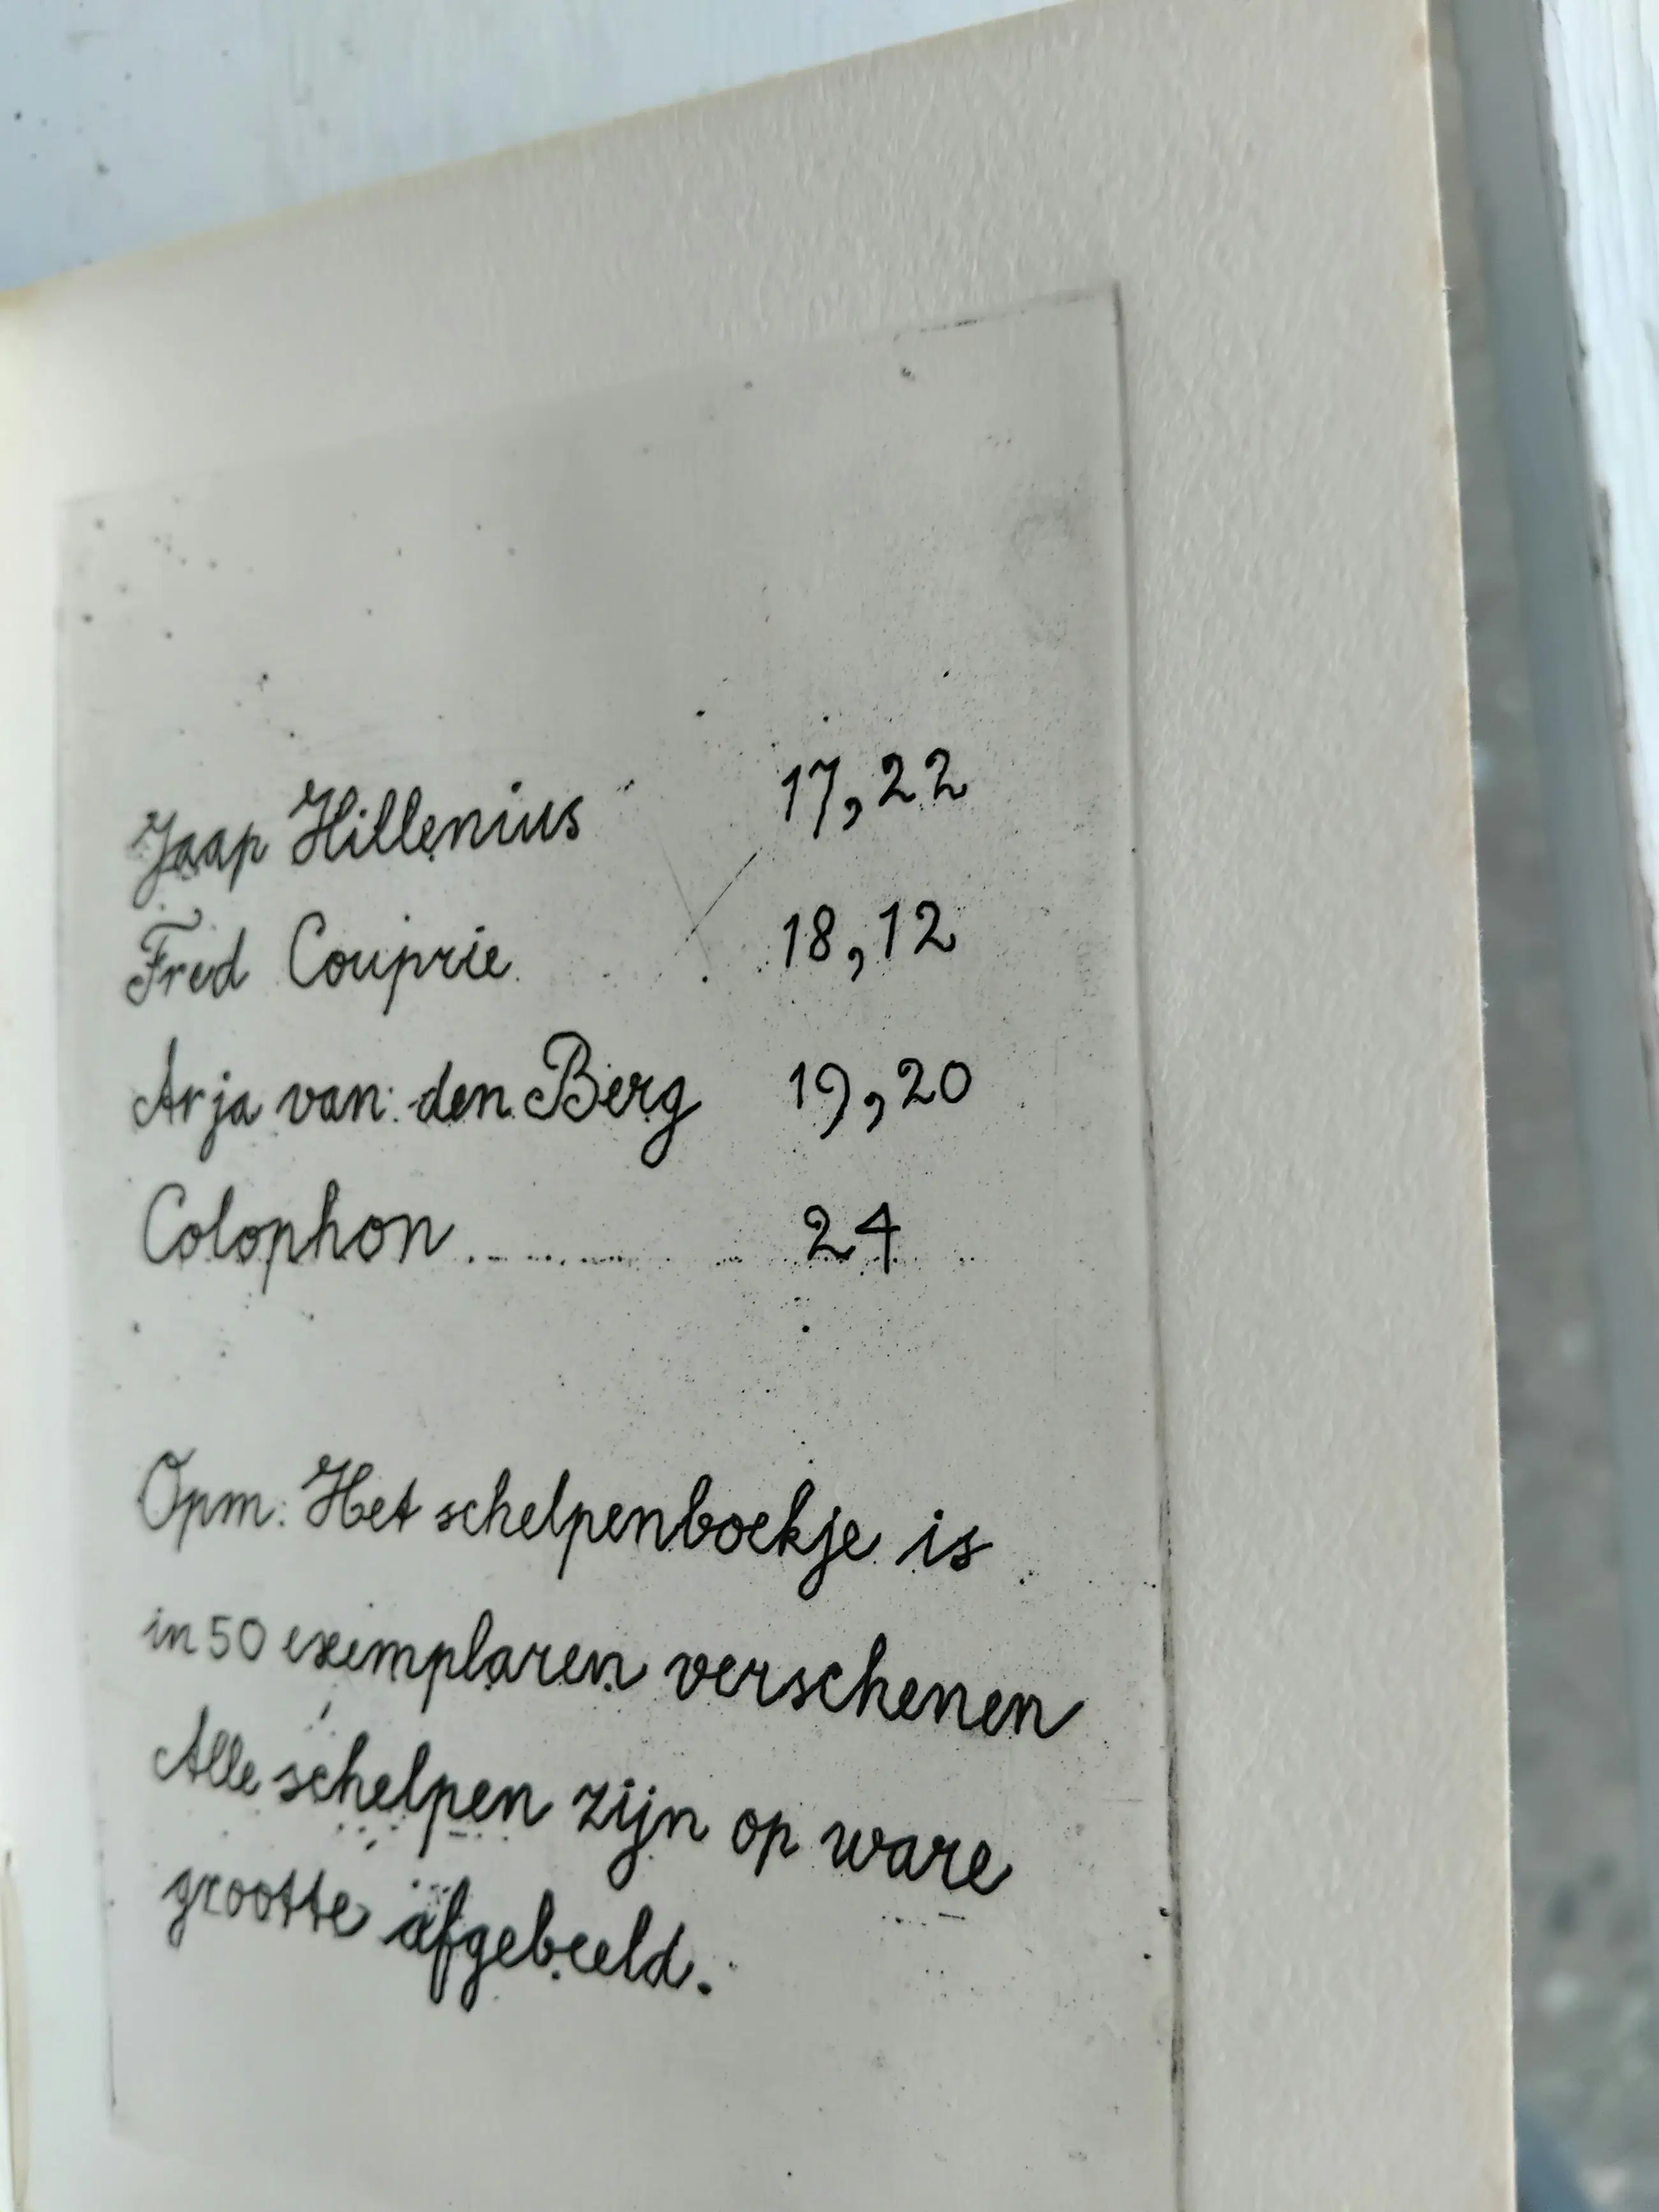 Jaap Hillenius 17,22
Fred Couprie 18,12
Arja van den Berg 19,20
Colophon 24
Opm: Het schelpenboekje is
in 50 exemplaren verschenen
Alle schelpen zijn op ware
grootte afgebeeld.